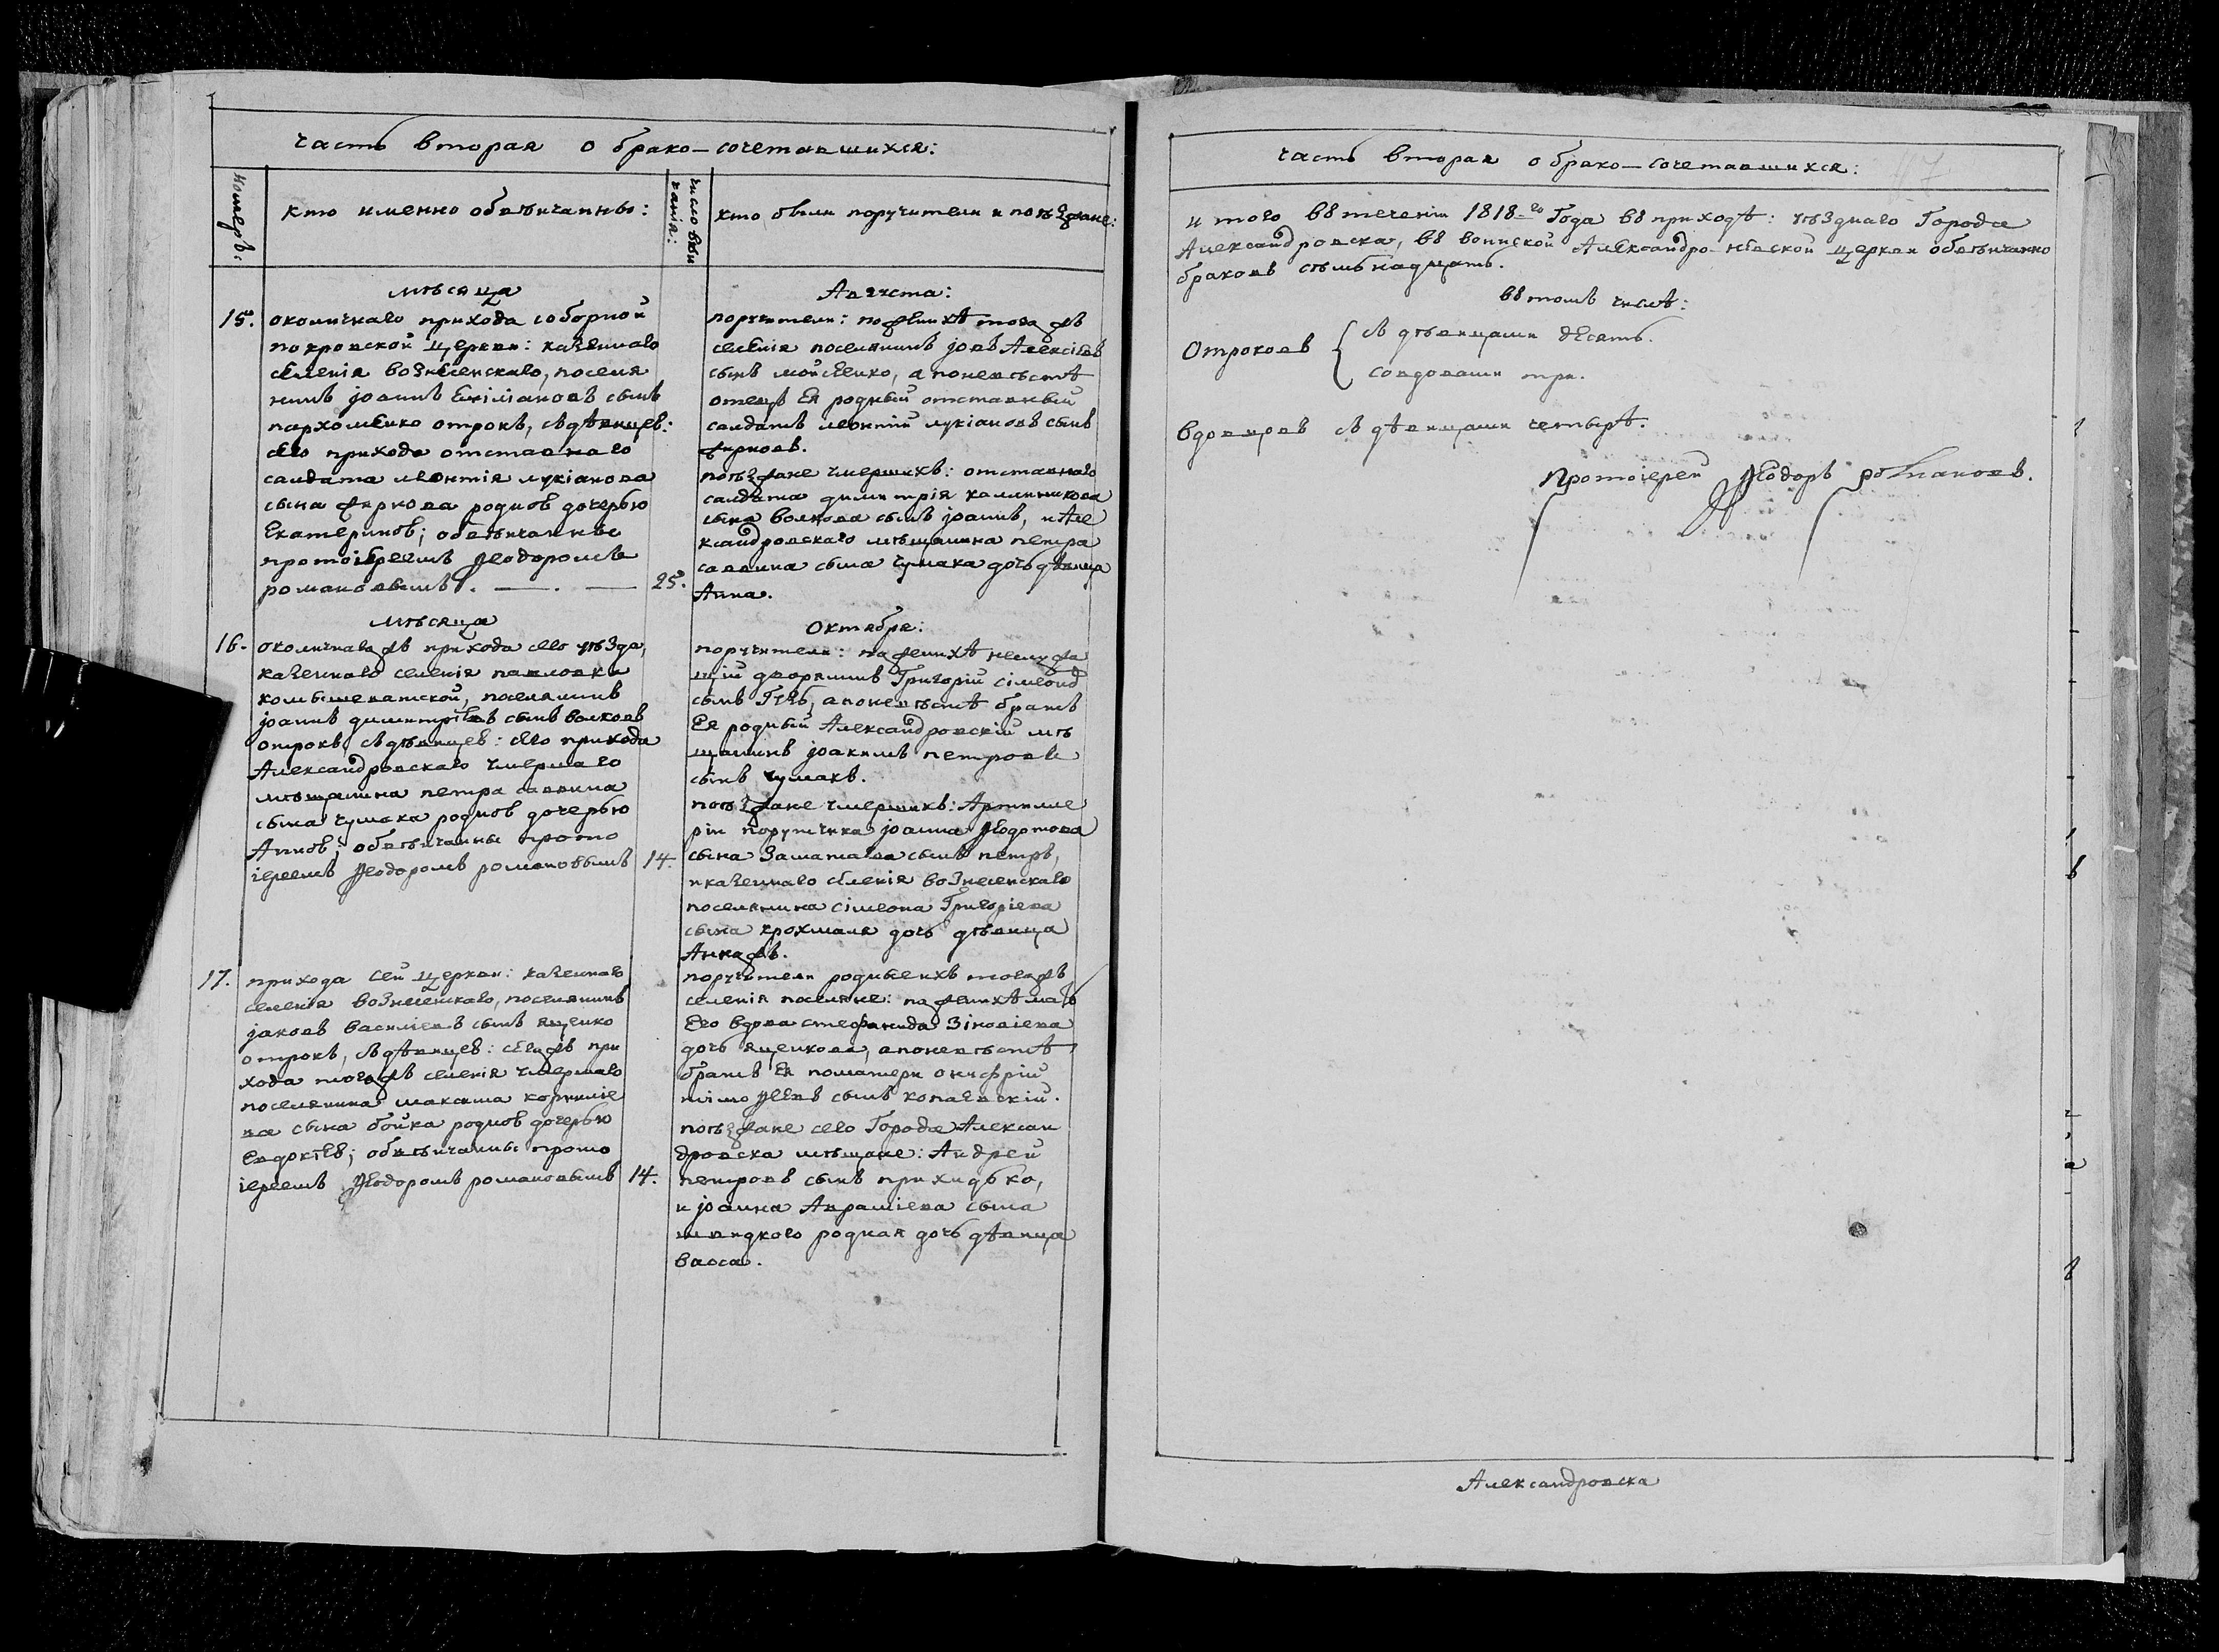 часть вторая о брако-сочетавшихся:
Номеръ:
кто именно обвѣнчанны:
число вѣн
чанія:
кто были поручители и поѣзжане:
мѣсяца
Августа:
15.
околичнаго прихода соборной
покровской церкви: казеннаго
селенія вознесенскаго, поселя
нинъ јоаннъ Емиліановъ сынъ
пархоменко отрокъ, съ дѣвицев:
сего прихода отставнаго
салдата леонтія лукіанова
сына фиркова родной дочерью
Екатериной; обвѣнчанны
протоіереемъ Ѳеодоромъ
романовымъ.
25.
поручители: по женихѣ того жъ
селенія поселянинъ јовъ Алексіевъ
сынъ мойсеенко, а по невѣстѣ
отецъ Ея родный отставный
салдатъ леонтій лукіановъ сынъ
фирковъ.
поѣзжане умершихъ: отставнаго
салдата димитрія каллиникова
сына волкова сынъ јоаннъ, и Але
ксандровскаго мѣщанина петра
саввина сына чумака дочь дѣвица
Анна.
мѣсяца
Октября:
16.
околичнаго жъ прихода сего уѣзда,
казеннаго селенія павловки
комышеватской, поселянинъ
јоаннъ димитріевъ сынъ волковъ
отрокъ съ дѣвицев: сего прихода
Александровскаго умершаго
мѣщанина петра саввина
сына чумака родной дочерью
Анной; обвѣнчанны прото
іереемъ Ѳеодоромъ романовымъ
14.
поручители: по женихѣ неслужа
щій дворянинъ Григорій сімеонов
сынъ Губ, а по невѣстѣ братъ
Ея родный Александровскій мѣ
щанинъ јоакимъ петровъ
сынъ чумакъ.
поѣзжане умершихъ: Артилле
ріи поручика јоанна Ѳедотова
сына Заматаева сынъ петръ,
и казеннаго селенія вознесенскаго
поселянина сімеона Григоріева
сына крохмаля дочь дѣвица
Анна жъ.
17.
прихода сей церкви: казеннаго
селенія вознесенскаго, поселянинъ
јаковъ василіевъ сынъ яценко
отрокъ, съ дѣвицев: сего жъ при
хода того жъ селенія умершаго
поселянина максима корниліе
ва сына бойка родной дочерью
Евдокіев; обвѣнчанны прото
іереемъ Ѳеодоромъ романовымъ
14.
поручители родные ихъ того жъ
селенія поселяне: по женихѣ мать
Его вдова стефанида Зіновіева
дочь яценкова, а по невѣстѣ
братъ Ея по матери онуфрій
тімоѳеевъ сынъ копаевскій.
поѣзжане сего Города Алексан
дровска мѣщане: Андрей
петровъ сынъ прихидько,
и јоанна Авраміева сына
швидкого родная дочь дѣвица
васса.
часть вторая о брако-сочетавшихся:
47
и того въ теченіи 1818-го Года въ приходѣ: уѣзднаго Города
Александровска, въ воинской Александро-невской церкви обвѣнчанно
браковъ съмьнадцать.
въ томъ числѣ:
Отроковъ { съ дѣвицами десять.
со вдовами три.
вдовцовъ съ дѣвицами четырѣ.
Протоіерей Ѳеодоръ романовъ.
Александровска